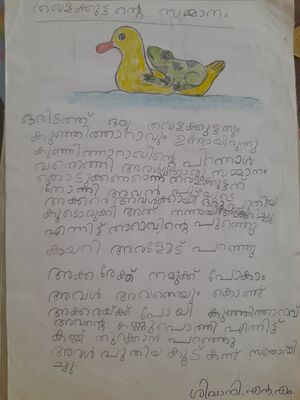 തവളക്കുട്ടന്റെ സമ്മാനം
ഒരിടത്ത് ഒരു തവളക്കുട്ടനും
കുഞ്ഞിത്താറാവും ഉണ്ടായിരുന്നു
കുഞ്ഞിത്താറാവിന്റെ പിറന്നാൾ
വന്നെത്തി അവൾക്കൊരു സമ്മാനം
കൊടുക്കണമെന്ന് തവളക്കുട്ടന്
തോന്നി അവൻ പുഴയുടെ
അക്കരെ അവൾക്കായി ഒരു പുതിയ
കൂടൊരുക്കി അത് നന്നായി
എന്നിട്ട് താറാവിന്റെ പുറത്തു
കയറി അവളോട് പറഞ്ഞു
അക്കരേക്ക് നമുക്ക് പോകാം
അവൾ അവനെയും കൊണ്ട്
അക്കരയ്ക്ക് പോയി കുഞ്ഞിത്താറാവ്
അവന്റെ കണ്ണുപൊത്തി എന്നിട്ട്
കണ്ണ് തുറക്കാൻ പറഞ്ഞു
അവൾ പുതിയ കൂട് കണ്ട് സന്തോഷി
ച്ചു
ശിവാനി.എൻ.കെ.